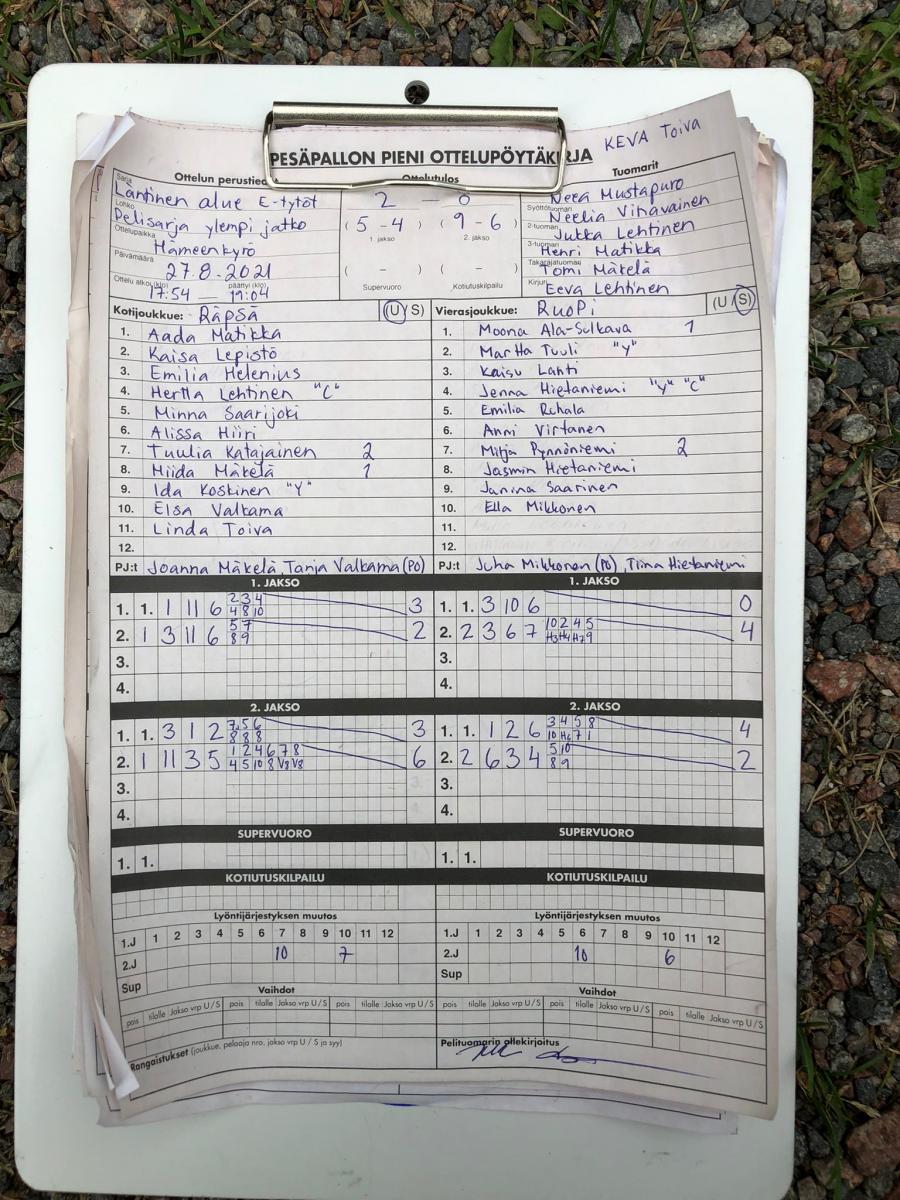 KEVA Toiva
PESÄPALLON PIENI OTTELUPÖYTÄKIRJA
Ottelun perustiedot Ottelutulos Tuomarit
Sarja Läntinen alue E-tytöt
Lohko Pelisarja ylempi jatko
Ottelupaikka Hämeenkyrö
Päivämäärä 27.8.2021
Ottelu alkoi (klo) 17:54 — päättyi (klo) 19:04
2 — 0
(5 - 4) (9 - 6)
1. jakso 2. jakso
( - ) ( - )
Supervuoro Kotiutuskilpailu
Neea Mustapuro
Syöttötuomari Neelia Vihavainen
2-tuoman Jukka Lehtinen
3-tuomari Henri Matikka
Takarajatuomari Tomi Mäkelä
Kirjuri Eeva Lehtinen
Kotijoukkue: Räpsä (U/S)
1. Aada Matikka
2. Kaisa Lepistö
3. Emilia Helenius
4. Hertta Lehtinen "C"
5. Minna Saarijoki
6. Alissa Hiiri
7. Tuulia Katajainen 2
8. Miida Mäkelä 1
9. Ida Koskinen "Y"
10. Elsa Valkama
11. Linda Toiva
12.
PJ:t Joanna Mäkelä Tanja Valkama (PO)
Vierasjoukkue: RuoPi (U/S)
1. Moona Ala-Sulkava 1
2. Martta Tuuli "Y"
3. Kaisu Lahti
4. Jenna Hietaniemi "Y" "C"
5. Emilia Rehala
6. Anni Virtanen
7. Mitja Pynnöniemi 2
8. Jasmin Hietaniemi
9. Janina Saarinen
10. Ella Mikkonen
11.
12.
PJ:t Juha Mikkonen (PO), Tiina Hietaniemi
1. JAKSO
1. 1. 1 11 6 2 3 4 3
4 8 10
2. 1 3 11 6 5 7 2
8 9
3.
4.
1. JAKSO
1. 1. 3 10 6 0
2. 2 3 6 7 10 2 4 5 4
H3 H4 H7 9
3.
4.
2. JAKSO
1. 1. 3 1 2 7 5 6 3
8 8 8
2. 1 11 3 5 1 2 4 6 7 8 6
4 5 10 8 V8 V8
3.
4.
2. JAKSO
1. 1. 1 2 6 3 4 5 8 4
10 H6 7 1
2. 2 6 3 4 5 10 2
8 9
3.
4.
SUPERVUORO
1. 1.
SUPERVUORO
1. 1.
KOTIUTUSKILPAILU
KOTIUTUSKILPAILU
Lyöntijärjestyksen muutos
1.J 1 2 3 4 5 6 7 8 9 10 11 12
2.J 10 7
Sup
Lyöntijärjestyksen muutos
1.J 1 2 3 4 5 6 7 8 9 10 11 12
2.J 10 6
Sup
Vaihdot
pois tilalle Jakso vrp U/S pois tilalle Jakso vrp U/S pois tilalle Jakso vrp U/S
Vaihdot
pois tilalle Jakso vrp U/S pois tilalle Jakso vrp U/S pois tilalle Jakso vrp U/S
Rangaistukset (joukkue, pelaaja nro, jakso vrp U / S ja syy)
Pelituomarin allekirjoitus